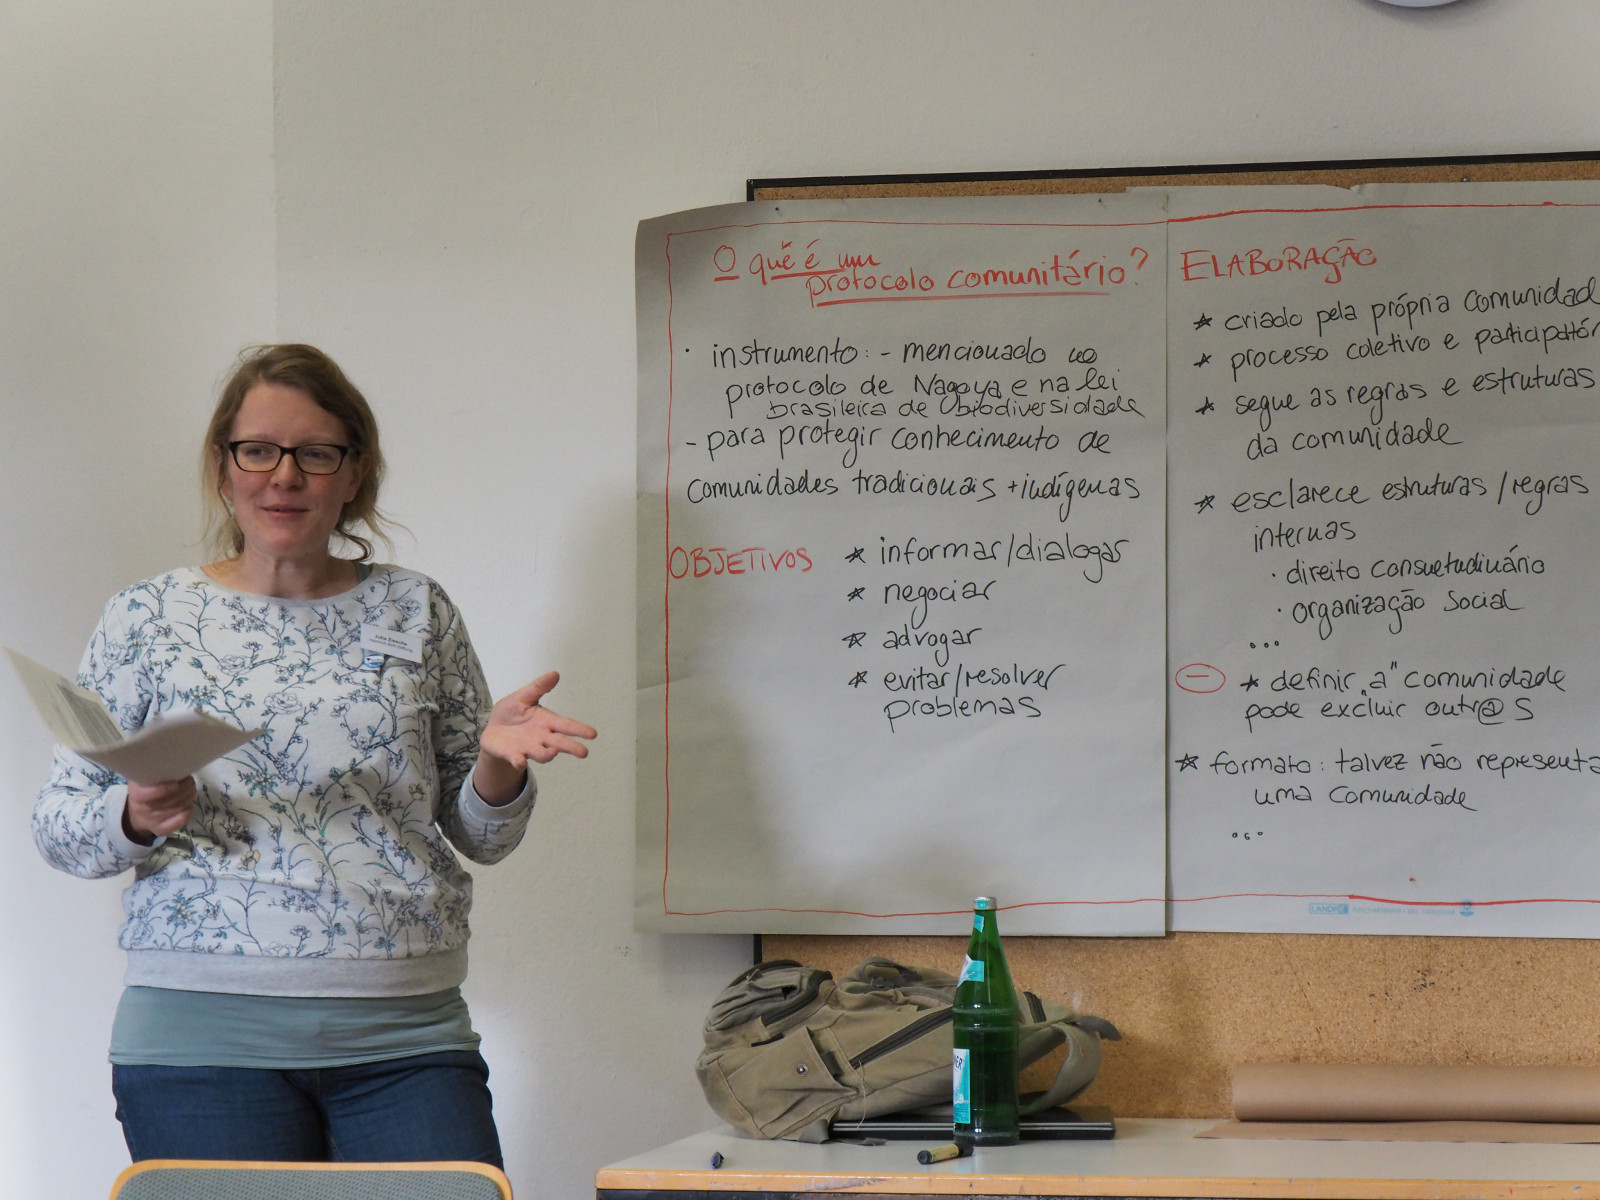 O quê é um
protocolo comunitário?
· instrumento: - mencionado no
protocolo de Nagoya e na lei
brasileira de biodiversidade
- para protegir conhecimento de
comunidades tradicionais + indígenas
OBJETIVOS
* informar/dialogar
* negociar
* advogar
* evitar/resolver
problemas
ELABORAÇÃO
* criado pela própria comunidad
* processo coletivo e participatór
* segue as regras e estruturas
da comunidade
* esclarece estruturas / regras
internas
· direito consuetudinário
· organização social
...
- * definir "a" comunidade
pode excluir outr@s
* formato: talvez não representa
uma comunidade
...
LANDPO